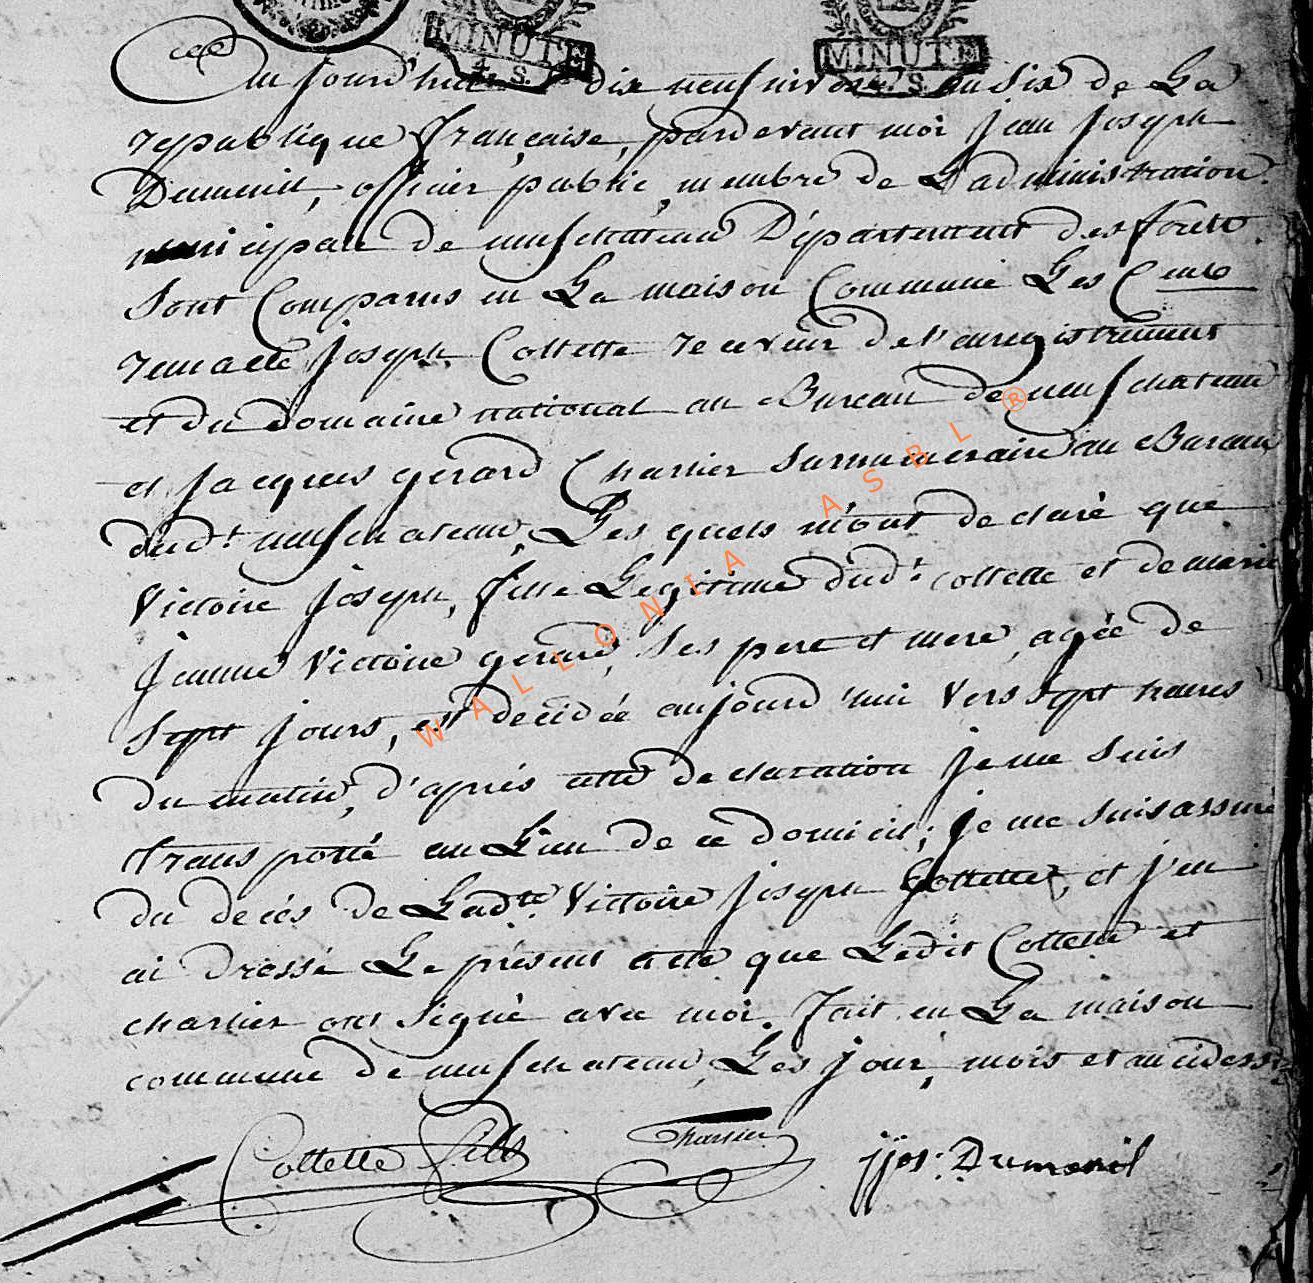 MINUTE
4. S.
MINUTE
4. S.
Au jourd'hui dix neuf nivose an six de La
republique française, pardevant moi jean joseph
Dumenil, officier public, membre de L'administration
municipale de neufchateau Département des forets.
Sont Comparus en La maison Commune Les Cens
remacle joseph Collette receveur de l'enregistrement
et du Domaine national au Bureau de neufchateau
et jacques gerard Charlier Surnumeraire au Bureau
dudt. neufchateau, Les quels m'ont declaré que
Victoire joseph, fille Legitime dudt. collette et de marie
jeanne Victoire gerard, Ses pere et mere, agée de
Sept jours, est decedée aujourd'hui vers sept heures
du matin, d'après cette declaration je me suis
transporté au Lieu de ce domicil; je me suis assuré
du decés de Ladte. Victoire joseph Collette, et j'en
ai Dressé Le présent acte que Ledit Collette et
charlier ont signé avec moi. fait en La maison
commune de neufchateau, Les jour, mois et an cidess
Collette fils Charlier jjos: Dumenil
WALLONIA ASBL ®